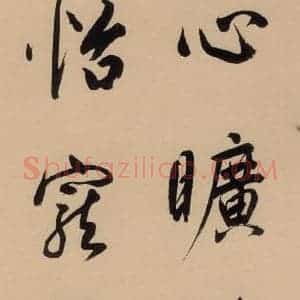 心曠
怡寵
Shufaziliao.com